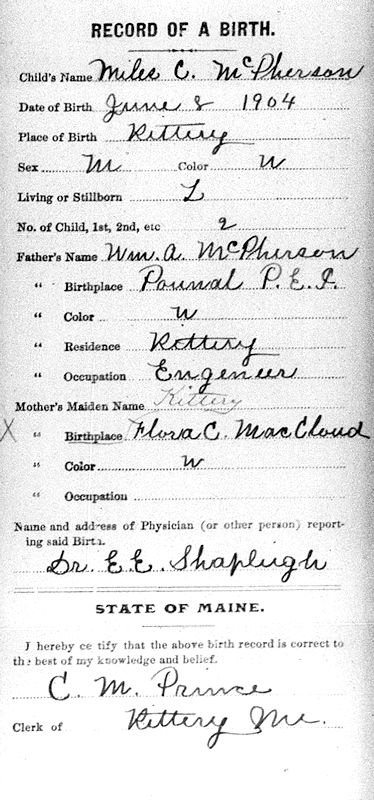 RECORD OF A BIRTH.
Child's Name Miles C. McPherson
Date of Birth June 8 1904
Place of Birth Kittery
Sex M Color W
Living or Stillborn L
No. of Child, 1st, 2nd, etc 2
Father's Name Wm. A. McPherson
" Birthplace Pownal P. E. I.
" Color W
" Residence Kittery
" Occupation Engeneer
Mother's Maiden Name Kittery
X " Birthplace Flora C. MacCloud
" Color W
" Occupation
Name and address of Physician (or other person) report-
ing said Birth.
Dr. E. E. Shapleigh
STATE OF MAINE.
I hereby ce tify that the above birth record is correct to
the best of my knowledge and belief.
C. M. Prince
Clerk of Kittery Me.